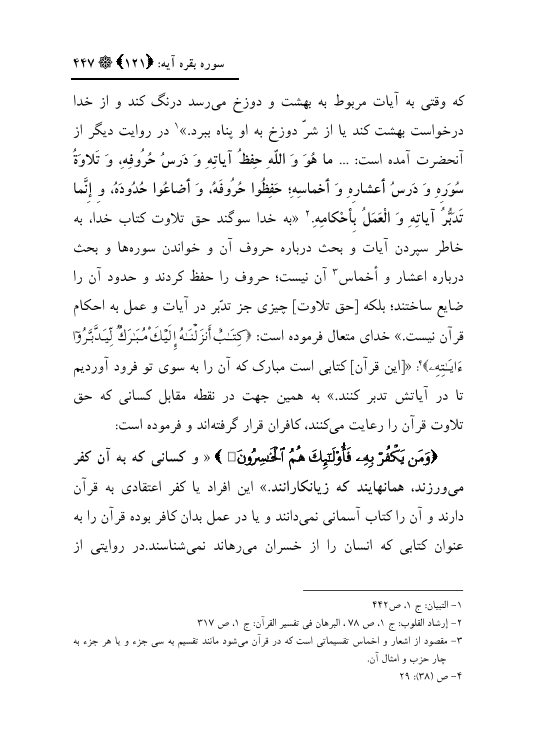 سوره بقره آیه: ﴿۱۲۱﴾ ❁ ۴۴۷
که وقتی به آیات مربوط به بهشت و دوزخ می‌رسد درنگ کند و از خدا
درخواست بهشت کند یا از شرّ دوزخ به او پناه ببرد.»۱ در روایت دیگر از
آنحضرت آمده است: ... ما هُوَ وَ اللّهِ حِفظُ آیاتِهِ وَ دَرسُ حُرُوفِهِ، وَ تَلاوَةُ
سُوَرِهِ وَ دَرسُ أعشارِهِ وَ أخماسِهِ؛ حَفِظُوا حُرُوفَهُ، وَ أضاعُوا حُدُودَهُ، و إنَّما
تَدَبُّرُ آیاتِهِ وَ الْعَمَلُ بِأحْکامِهِ.۲ «به خدا سوگند حق تلاوت کتاب خدا، به
خاطر سپردن آیات و بحث درباره حروف آن و خواندن سوره‌ها و بحث
درباره اعشار و أخماس۳ آن نیست؛ حروف را حفظ کردند و حدود آن را
ضایع ساختند؛ بلکه [حق تلاوت] چیزی جز تدبّر در آیات و عمل به احکام
قرآن نیست.» خدای متعال فرموده است: ﴿كِتَٰبٌ أَنزَلْنَٰهُ إِلَيْكَ مُبَٰرَكٌ لِّيَدَّبَّرُوٓا۟
ءَايَٰتِهِۦ﴾۴: «[این قرآن] کتابی است مبارک که آن را به سوی تو فرود آوردیم
تا در آیاتش تدبر کنند.» به همین جهت در نقطه مقابل کسانی که حق
تلاوت قرآن را رعایت می‌کنند، کافران قرار گرفته‌اند و فرموده است:
﴿وَمَن يَكْفُرْ بِهِۦ فَأُو۟لَٰٓئِكَ هُمُ ٱلْخَٰسِرُونَ﴾ « و کسانی که به آن کفر
می‌ورزند، همانهایند که زیانکارانند.» این افراد یا کفر اعتقادی به قرآن
دارند و آن را کتاب آسمانی نمی‌دانند و یا در عمل بدان کافر بوده قرآن را به
عنوان کتابی که انسان را از خسران می‌رهاند نمی‌شناسند.در روایتی از
۱- التبیان: ج ۱، ص۴۴۲
۲- إرشاد القلوب: ج ۱، ص ۷۸ ، البرهان فی تفسیر القرآن: ج ۱، ص ۳۱۷
۳- مقصود از اشعار و اخماس تقسیماتی است که در قرآن می‌شود مانند تقسیم به سی جزء و یا هر جزء به
چار حزب و امثال آن.
۴- ص (۳۸): ۲۹